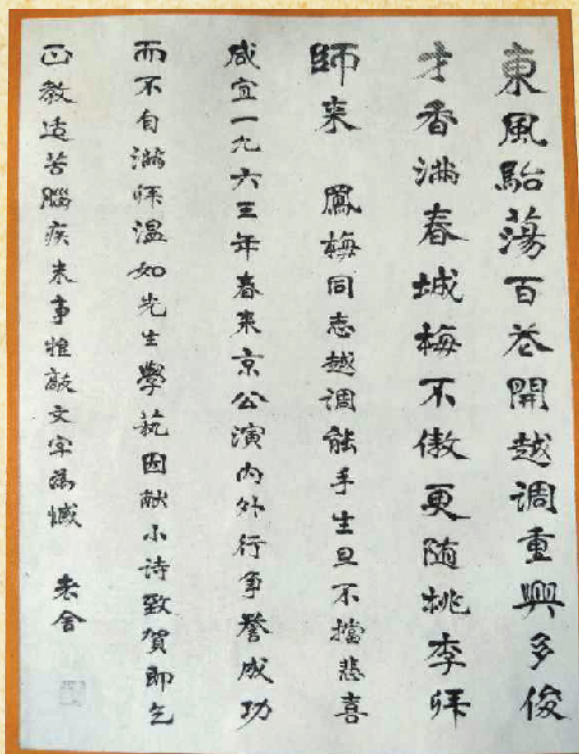 東風駘蕩百花開越调重興多俊
才香满春城梅不傲更随桃李拜
師来 鳳梅同志越调能手生旦不擋悲喜
咸宜一九六三年春来京公演内外行争誉成功
而不自满拜温如先生學藝因献小诗致賀即乞
正教适苦腦疾未事推敲文字為憾 老舍